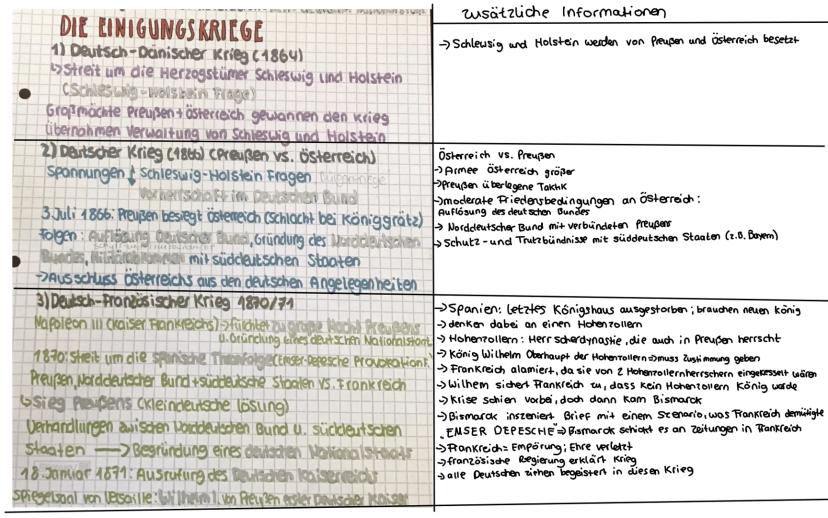 DIE EINIGUNGSKRIEGE
1) Deutsch-Dänischer Krieg (1864)
↳ Streit um die Herzogstümer Schleswig und Holstein
(Schleswig-Holstein Frage)
Großmächte Preußen + Österreich gewannen den Krieg
übernahmen Verwaltung von Schleswig und Holstein
2) Deutscher Krieg (1866) (Preußen vs. Österreich)
Spannungen ↓ Schleswig-Holstein Fragen
Vorherrschaft im Deutschen Bund
3. Juli 1866: Preußen besiegt Österreich (Schlacht bei Königgrätz)
Folgen: Auflösung Deutscher Bund, Gründung des Norddeutschen
Bundes, mit süddeutschen Staaten
→ Ausschluss Österreichs aus den deutschen Angelegenheiten
3) Deutsch-Französischer Krieg 1870/71
Napoleon III (Kaiser Frankreichs) → fürchtet zu große Macht Preußens
u. Gründung eines deutschen Nationalstaat
1870: Streit um die spanische Thronfolge (Emser-Depesche Provokation F.
Preußen, Norddeutscher Bund + süddeutsche Staaten VS. Frankreich
↳ Sieg Preußens (kleindeutsche Lösung)
Verhandlungen zwischen Norddeutschen Bund u. süddeutschen
Staaten → Begründung eines deutschen Nationalstaats
18. Januar 1871: Ausrufung des Deutschen Kaiserreichs
Spiegelsaal von Versaille: Wilhelm I. von Preußen erster Deutscher Kaiser
zusätzliche Informationen
→ Schleusig und Holstein werden von Preußen und Österreich besetzt
Österreich vs. Preußen
→ Armee Österreich größer
→ Preußen überlegene Taktik
→ moderate Friedensbedingungen an Österreich:
Auflösung des deutschen Bundes
→ Norddeutscher Bund mit verbündeten Preußens
→ Schutz- und Trutzbündnisse mit süddeutschen Staaten (z.B. Bayern)
→ Spanien: letztes Königshaus ausgestorben; brauchen neuen König
→ denken dabei an einen Hohenzollern
→ Hohenzollern: Herrscherdynastie, die auch in Preußen herrscht
→ König Wilhelm Oberhaupt der Hohenzollern ⇒ muss Zustimmung geben
→ Frankreich alamiert, da sie von 2 Hohenzollernherrschern eingekesselt wären
→ Wilhelm sichert Frankreich zu, dass kein Hohenzollern König werde
→ Krise schien vorbei, doch dann kam Bismarck
→ Bismarck inszeniert Brief mit einem Scenario, was Frankreich demütigte
„EMSER DEPESCHE" ⇒ Bismarck schickt es an Zeitungen in Frankreich
→ Frankreich = Empörung; Ehre verletzt
→ französische Regierung erklärt Krieg
→ alle Deutschen ziehen begeistert in diesen Krieg